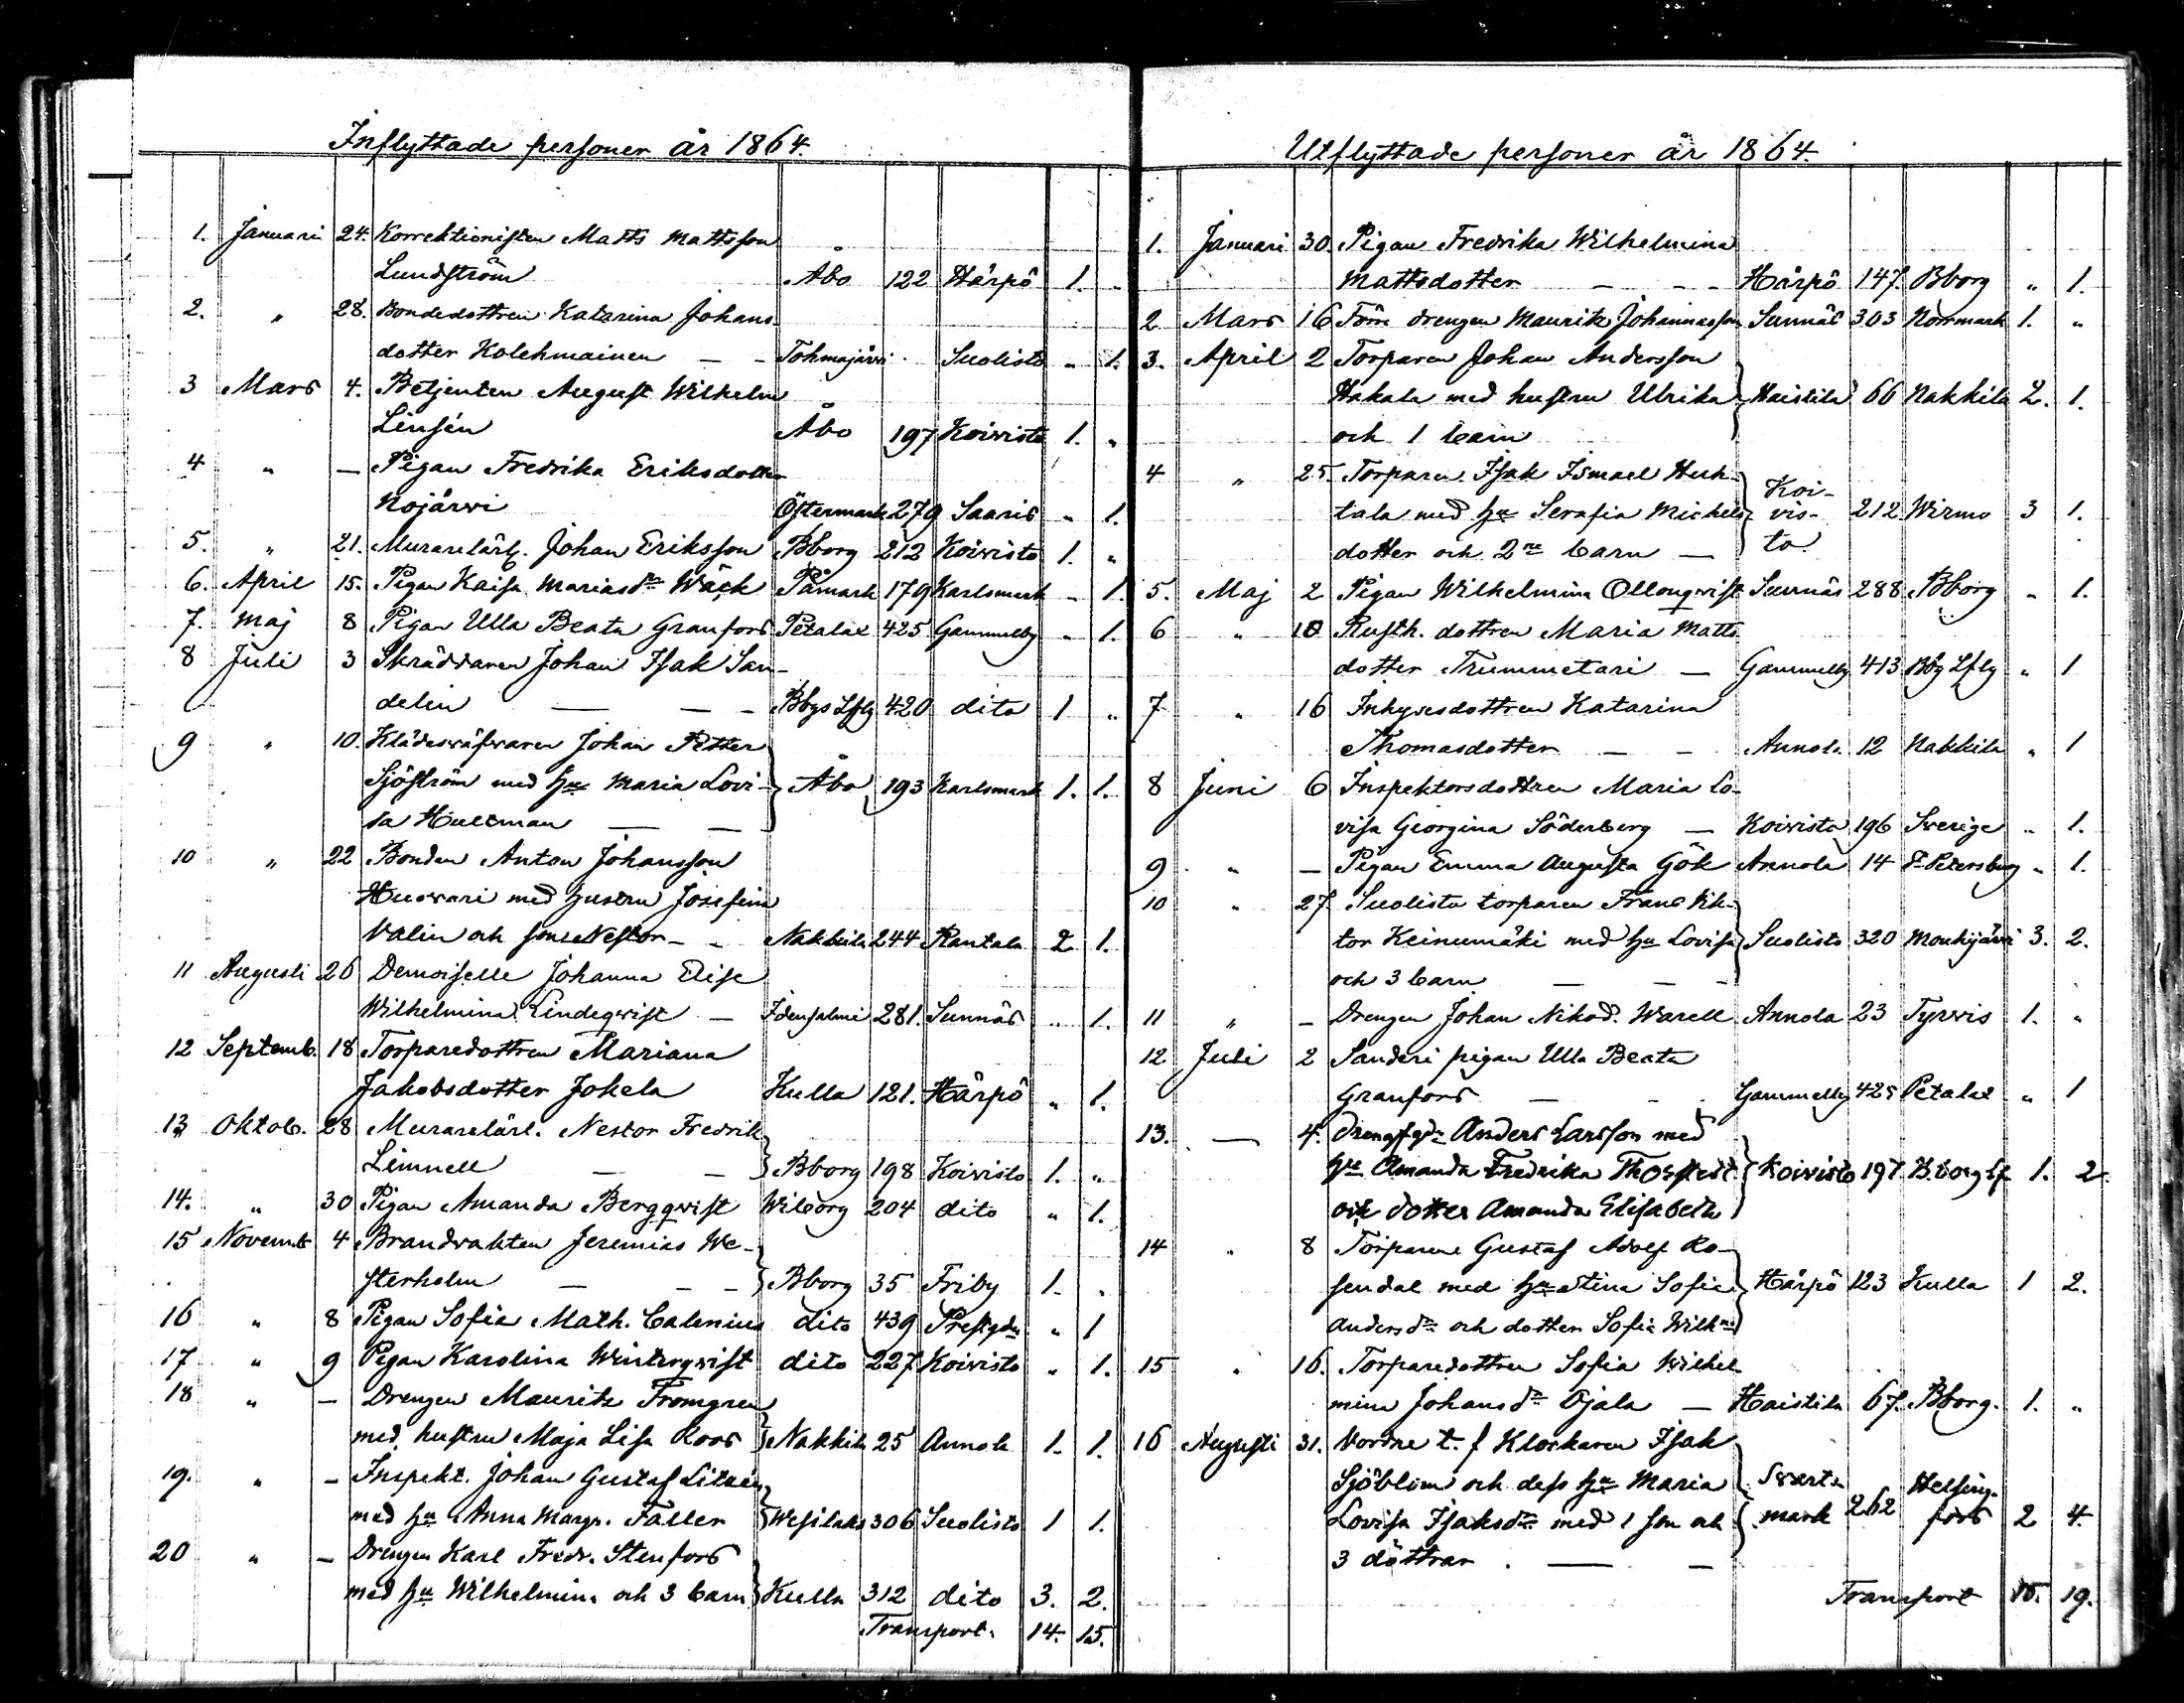 Inflyttade personer år 1864.
1. Januari 24. Korrektionisten Matts Mattsson
Lundström Åbo 122 Härpö 1. "
2. " 28. Bondedottren Katarina Johans-
dotter Kolehmainen — – Tohmajärvi Suolisto " 1.
3 Mars 4. Betjenten August Wilhelm
Linsén Åbo 197 Koivisto 1. "
4 " — Pigan Fredrika Eriksdotter
Nojärvi Östermark 279 Saaris " 1.
5. " 21. Murarelärl. Johan Eriksson Bborg 212 Koivisto 1. "
6. April 15. Pigan Kaisa Mariasdr Wäck Påmark 179 Karlsmark – 1.
7. Maj 8 Pigan Ulla Beata Granfors Petalax 425 Gammelby " 1.
8 Juli 3 Skräddaren Johan Isak San-
delin — — – Bbgs Lfsg 420 dito 1 "
9 " 10. Klädesväfvaren Johan Petter
Sjöström med hu Maria Lovi- Åbo 193 Karlsmark 1. 1.
sa Hultman — —
10 " 22 Bonden Anton Johansson
Huovari med hustru Josefina
Valin och son Nestor – – Nakkila 244 Rantala 2 1.
11 Augusti 26 Demoiselle Johanna Elise
Wilhelmina Lindeqvist – Idensalmi 281. Sunnäs " 1.
12 Septemb. 18 Torparedottren Mariana
Jakobsdotter Jokela Kulla 121. Härpö " 1.
13 Oktob. 28 Murarelärl. Nestor Fredrik
Limnell — — Bborg 198 Koivisto 1. "
14. " 30 Pigan Amanda Bergqvist Wiborg 204 dito " 1.
15 Novemb 4 Brandvakten Jeremias We-
sterholm — – – Bborg 35 Friby 1. "
16 " 8 Pigan Sofia Math. Calenius dito 439 Prestgdn " 1
17 " 9 Pigan Karolina Winterqvist dito 227 Koivisto " 1.
18 " — Drengen Mauritz Fromgren
med hustru Maja Lisa Roos Nakkila 25 Annola 1. 1.
19. " – Inspekt. Johan Gustaf Litzén
med hu Anna Margr. Faller Wesilaks 306 Suolisto 1 1.
20 " – Drengen Karl Fredr. Stenfors
med hu Wilhelmina och 3 barn Kulla 312 dito 3. 2.
Transport. 14. 15.
Utflyttade personer år 1864.
1. Januari 30. Pigan Fredrika Wilhelmina
Mattsdotter — – – Härpö 147. Bborg " 1.
2 Mars 16 Förre drengen Mauritz Johannesson Sunnäs 303 Norrmark 1. "
3. April 2 Torparen Johan Andersson
Hakala med hustru Ulrika Haistila 66 Nakkila 2. 1.
och 1 barn
4 " 25 Torparen Isak Ismael Huh-
tala med hu Serafia Michels- Koi-vis-to 212. Wirmo 3 1.
dotter och 2ne barn —
5. Maj 2 Pigan Wilhelmina Ollonqvist Sunnäs 288 Bborg " 1.
6 " 10 Rusth. dottren Maria Matts
dotter Trummetari — Gammelby 413 Bbg Lfsg " 1
7 " 16 Inhysesdottren Katarina
Thomasdotter — – Annola 12 Nakkila " 1
8 Juni 6 Inspektorsdottren Maria Lo-
visa Georgina Söderberg — Koivisto 196 Sverige " 1.
9 " — Pigan Emma Augusta Gök Annola 14 St Petersburg " 1.
10 " 27. Suolisto torparen Frans Vik-
tor Keinumäki med hu Lovisa Suolisto 320 Mouhijärvi 3. 2.
och 3 barn — – –
11 " – Drengen Johan Nikod. Warell Annola 23 Tyrvis 1. "
12 Juli 2 Sanderi pigan Ulla Beata
Granfors — – Gammelby 425 Petalax " 1
13. — 4. Anders Larsson med
hu Amanda Fredrika Thorstedt Koivisto 197 B.borg Lf 1. 2.
och dotter Amanda Elisabeth
14 " 8 Torparen Gustaf Adolf Ro-
sendal med hu Stina Sofia Härpö 123 Kulla 1 2.
Andersdr och dotter Sofia Wilhna
15 " 16. Torparedottren Sofia Wilhel-
mina Johansdr Ojala — Haistila 67. Bborg. 1. "
16 Augusti 31. Vordne t. f Klockaren Isak
Sjöblom och dess hu Maria Svarts- Helsing-
Lovisa Isaksdr med 1 son och mark 262 fors 2 4.
3 döttrar . — –
Transport 15. 19.